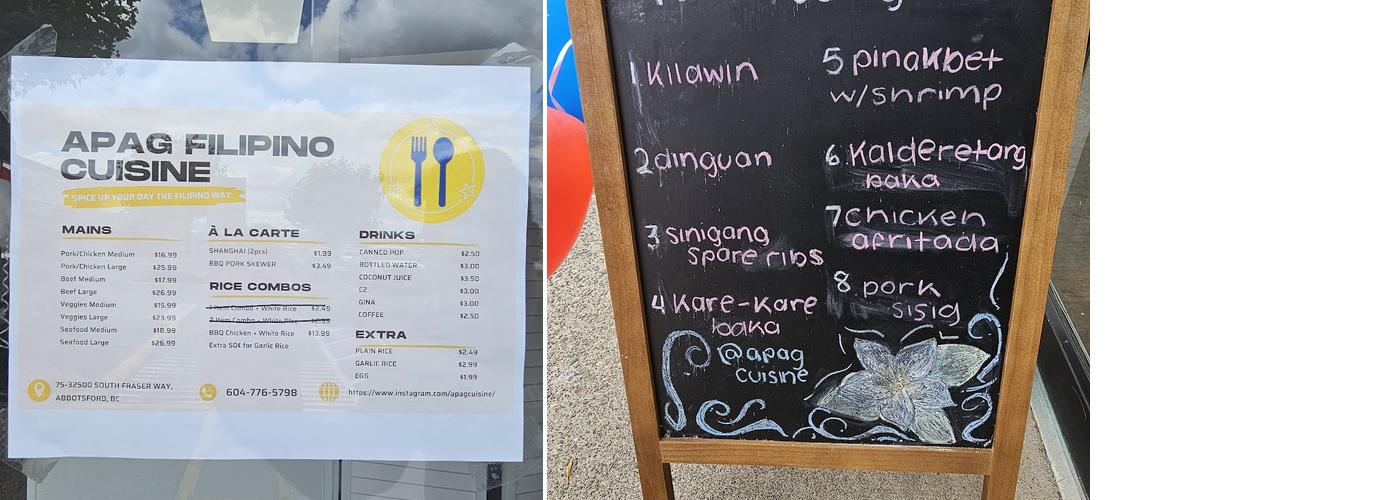 APAG FILIPINO
CUISINE
SPICE UP YOUR DAY THE FILIPINO WAY
MAINS
Pork/Chicken Medium $16.99
Pork/Chicken Large $25.99
Beef Medium $17.99
Beef Large $26.99
Veggies Medium $15.99
Veggies Large $23.99
Seafood Medium $18.99
Seafood Large $26.99
À LA CARTE
SHANGHAI (2pcs) $1.99
BBQ PORK SKEWER $3.49
RICE COMBOS
1 Item Combo + White Rice $2.49
2 Item Combo + White Rice $2.99
BBQ Chicken + White Rice $13.99
Extra 50¢ for Garlic Rice
DRINKS
CANNED POP $2.50
BOTTLED WATER $3.00
COCONUT JUICE $3.50
C2 $3.00
GINA $3.00
COFFEE $2.50
EXTRA
PLAIN RICE $2.49
GARLIC RICE $2.99
EGG $1.99
75-32500 SOUTH FRASER WAY,
ABBOTSFORD, BC
604-776-5798
https://www.instagram.com/apagcuisine/
1 Kilawin
2 dinguan
3 sinigang
spare ribs
4 Kare-Kare
baka
5 pinakbet
w/shrimp
6 Kalderetang
baka
7 chicken
afritada
8. pork
sisig
@apag
cuisine